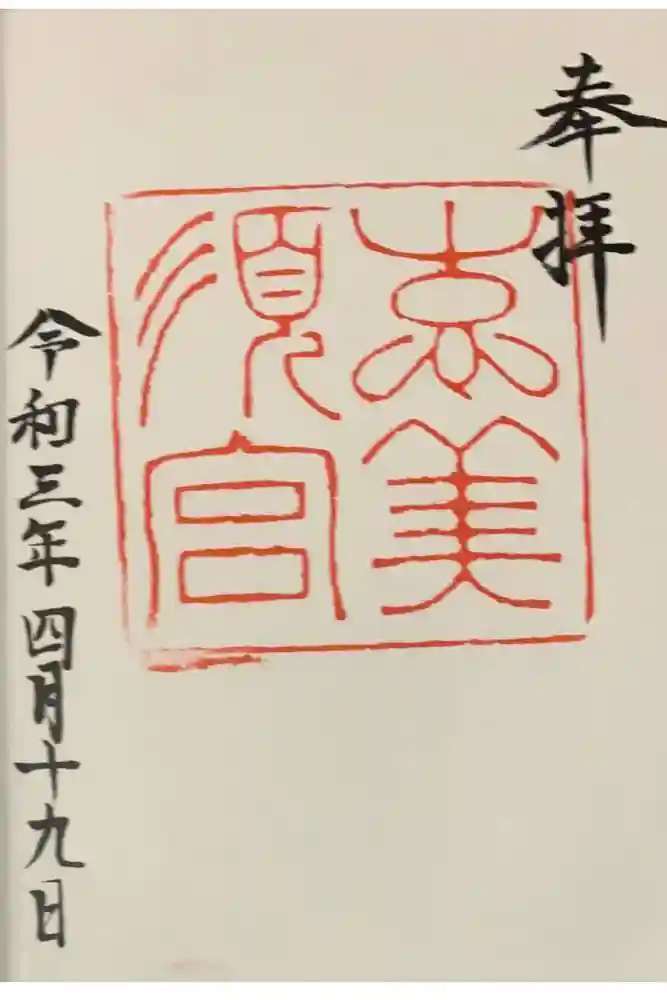 奉拝
恵美
須宮
令和三年四月十九日